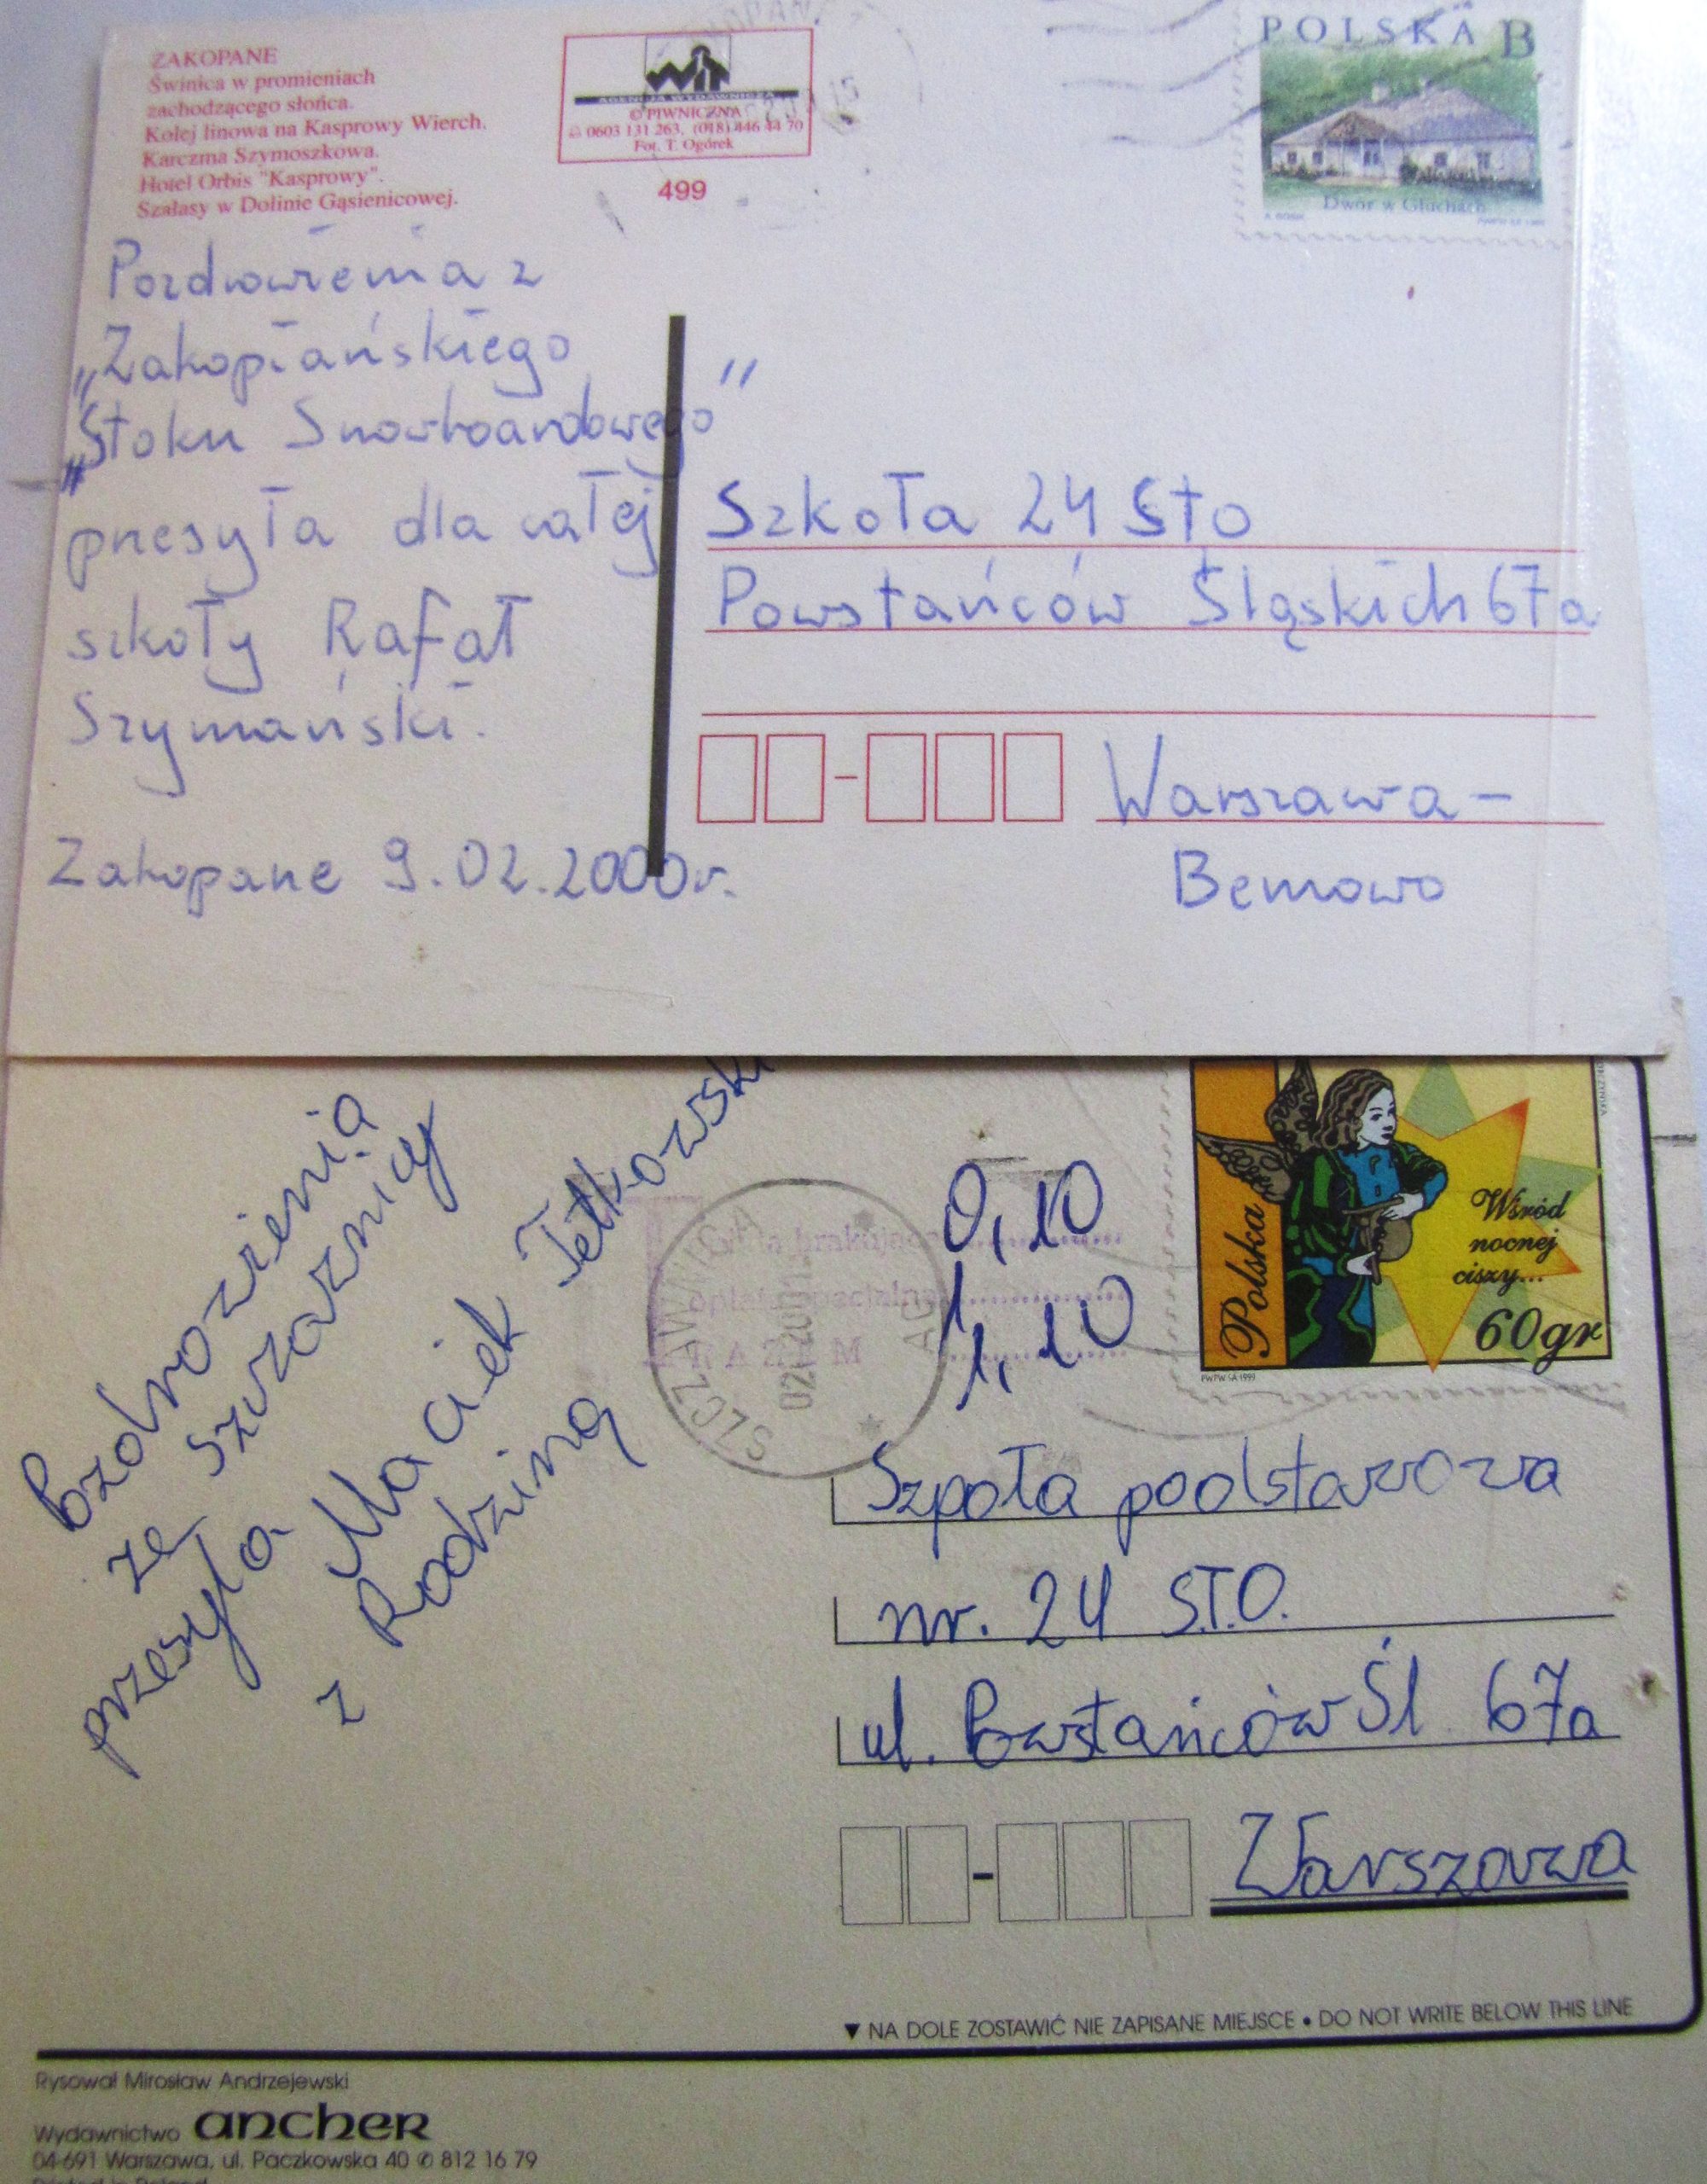 ZAKOPANE
Świnica w promieniach
zachodzącego słońca.
Kolej linowa na Kasprowy Wierch.
Karczma Szymoszkowa.
Hotel Orbis "Kasprowy".
Szałasy w Dolinie Gąsienicowej.
WiT
AGENCJA WYDAWNICZA
© PIWNICZNA
0603 131 263, (018) 446 44 70
Fot. T. Ogórek
499
POLSKA B
Dwór w Głuchach
Pozdrowienia z
„Zakopiańskiego
„Stoku Snowboardowego"
przesyła dla całej
szkoły Rafał
Szymański.
Zakopane 9.02.2000r.
Szkoła 24 Sto
Powstańców Śląskich 67a
Warszawa -
Bemowo
Pozdrowienia
ze Szczawnicy
przesyła
Maciek Tetkowski
z Rodziną
SZCZAWNICA
0,10
1,10
Polska
Wśród
nocnej
ciszy...
60gr
PWPW SA 1999
Szpoła podstawowa
nr. 24 S.T.O.
ul. Powstańców Śl 67a
Warszawa
▼ NA DOLE ZOSTAWIĆ NIE ZAPISANE MIEJSCE • DO NOT WRITE BELOW THIS LINE
Rysował Mirosław Andrzejewski
Wydawnictwo ancher
04-691 Warszawa, ul. Paczkowska 40 ✆ 812 16 79
Printed in Poland